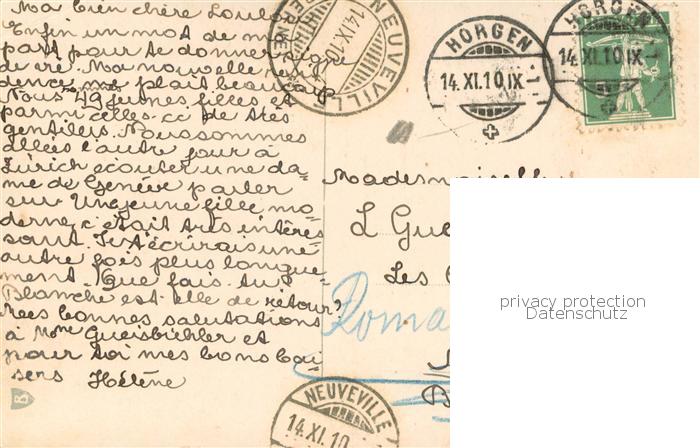 Ma bien chère Loul
Enfin un mot de m
part pour te donner signe
de vie. Ma nouvelle rési
dence me plait beaucoup
Nous 49 jeunes filles et
parmi celles-ci de très
gentilles. Nous sommes
allées l'autre jour à
Zürich écouter une da-
me de Genève parler
sur Une jeune fille mo-
derne c'était très intéres
sant. Je t'écrirais une
autre fois plus longue-
ment. Que fais-tu?
Blanche est-elle de retour?
Mes bonnes salutations
à Mme Gueisbühler et
pour toi mes bons bai-
sers Hélène
NEUVEVILLE
14.IX.10
HORGEN
14.XI.10 IX
HORGEN
14.XI.10 IX
Mademoiselle
L Gue
Les
Roma
privacy protection
Datenschutz
NEUVEVILLE
14.XI.10
B